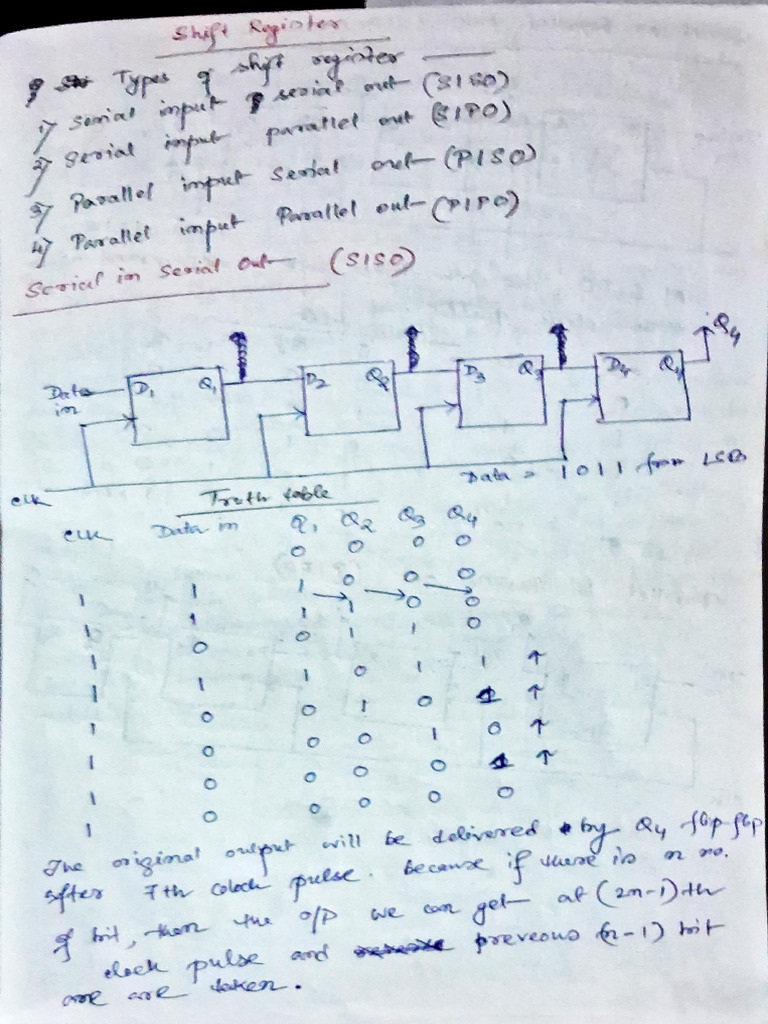 Shift Register
Types of shift register
1) Serial input serial out (SISO)
2) Serial input parallel out (SIPO)
3) Parallel input Serial out (PISO)
4) Parallel input Parallel out (PIPO)
Serial in Serial Out (SISO)
Q4
Data in D1 Q1 D2 Q2 D3 Q3 D4 Q4
CLK Data = 1011 from LSB
Truth table
CLK Data in Q1 Q2 Q3 Q4
0 0 0 0
1 1 1 0 0 0
1 1 1 1 0 0
1 0 0 1 1 0
1 1 1 0 1 1 ↑
1 0 0 1 0 1 ↑
1 0 0 0 1 0 ↑
1 0 0 0 0 1 ↑
1 0 0 0 0 0
The original output will be delivered by Q4 flip-flop
after 7th clock pulse. Because if there is n no.
of bit, then the o/p we can get at (2n-1)th
clock pulse and preveous (n-1) bit
are are taken.